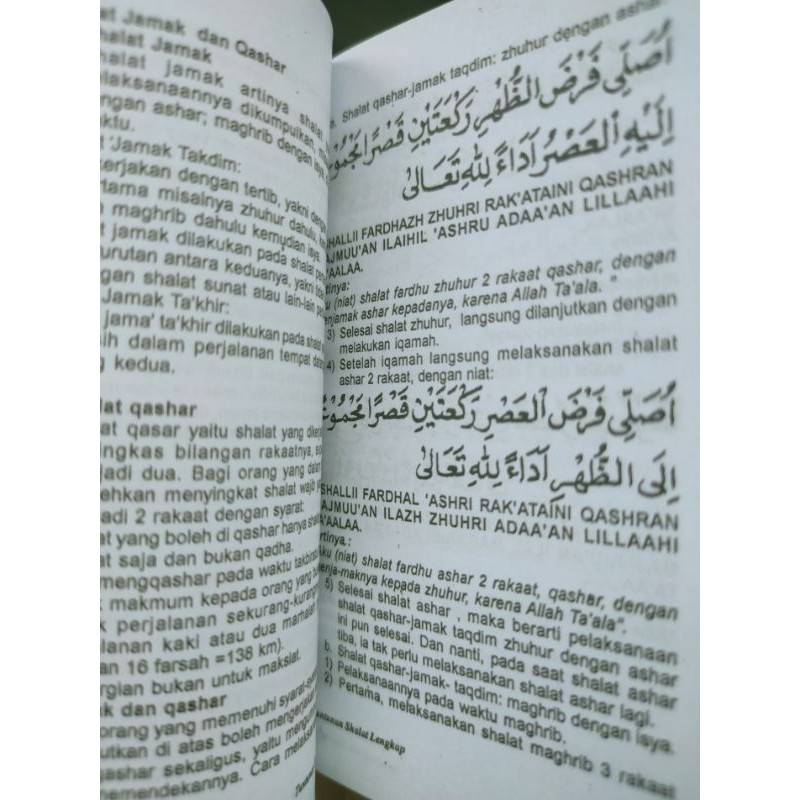 Jamak dan Qashar
Shalat Jamak
shalat jamak artinya shalat
pelaksanaannya dikumpulkan,
dengan ashar; maghrib dengan
waktu.
'Jamak Takdim:
dikerjakan dengan tertib, yakni
pertama misalnya zhuhur dahulu,
maghrib dahulu kemudian isya.
jamak dilakukan pada shalat
urutan antara keduanya, yakni
dengan shalat sunat atau lain-lain
Jamak Ta'khir:
jama' ta'khir dilakukan pada shalat
dalam perjalanan tempat
kedua.
qashar
qasar yaitu shalat yang
bilangan rakaatnya,
dua. Bagi orang yang dalam
menyingkat shalat wajib
2 rakaat dengan syarat:
yang boleh di qashar hanya
saja dan bukan qadha.
mengqashar pada waktu
makmum kepada orang yang
perjalanan sekurang-kurang
kaki atau dua
16 farsah =138 km).
bukan untuk maksiat.
dan qashar
orang yang memenuhi
di atas boleh
qashar sekaligus, yaitu
memendekannya. Cara
Shalat qashar-jamak taqdim: zhuhur dengan ashar
أُصَلِّى فَرْضَ الظُّهْرِ رَكْعَتَيْنِ قَصْرًا
إِلَيْهِ الْعَصْرُ اَدَاءً لِلّٰهِ تَعَالَىٰ
SHALLII FARDHAZH ZHUHRI RAK'ATAINI QASHRAN
AJMUU'AN ILAIHIL 'ASHRU ADAA'AN LILLAAHI
A'AALAA.
tinya:
(niat) shalat fardhu zhuhur 2 rakaat qashar, dengan
enjamak ashar kepadanya, karena Allah Ta'ala. "
3) Selesai shalat zhuhur, langsung dilanjutkan dengan
melakukan iqamah.
4) Setelah iqamah langsung melaksanakan shalat
ashar 2 rakaat, dengan niat:
أُصَلِّى فَرْضَ الْعَصْرِ رَكْعَتَيْنِ قَصْرًا
إِلَى الظُّهْرِ اَدَاءً لِلّٰهِ تَعَالَىٰ
SHALLII FARDHAL 'ASHRI RAK'ATAINI QASHRAN
AJMUU'AN ILAZH ZHUHRI ADAA'AN LILLAAHI
A'AALAA.
rtinya.:
ku (niat) shalat fardhu ashar 2 rakaat, qashar, dengan
enja-maknya kepada zhuhur, karena Allah Ta'ala".
5) Selesai shalat ashar , maka berarti pelaksanaan
shalat qashar-jamak taqdim zhuhur dengan ashar
ini pun selesai. Dan nanti, pada saat shalat ashar
tiba, ia tak perlu melaksanakan shalat ashar lagi.
b. Shalat qashar-jamak- taqdim: maghrib dengan isya.
1) Pelaksanaannya pada waktu maghrib.
2) Pertama, melaksanakan shalat maghrib 3 rakaat
Shalat Lengkap